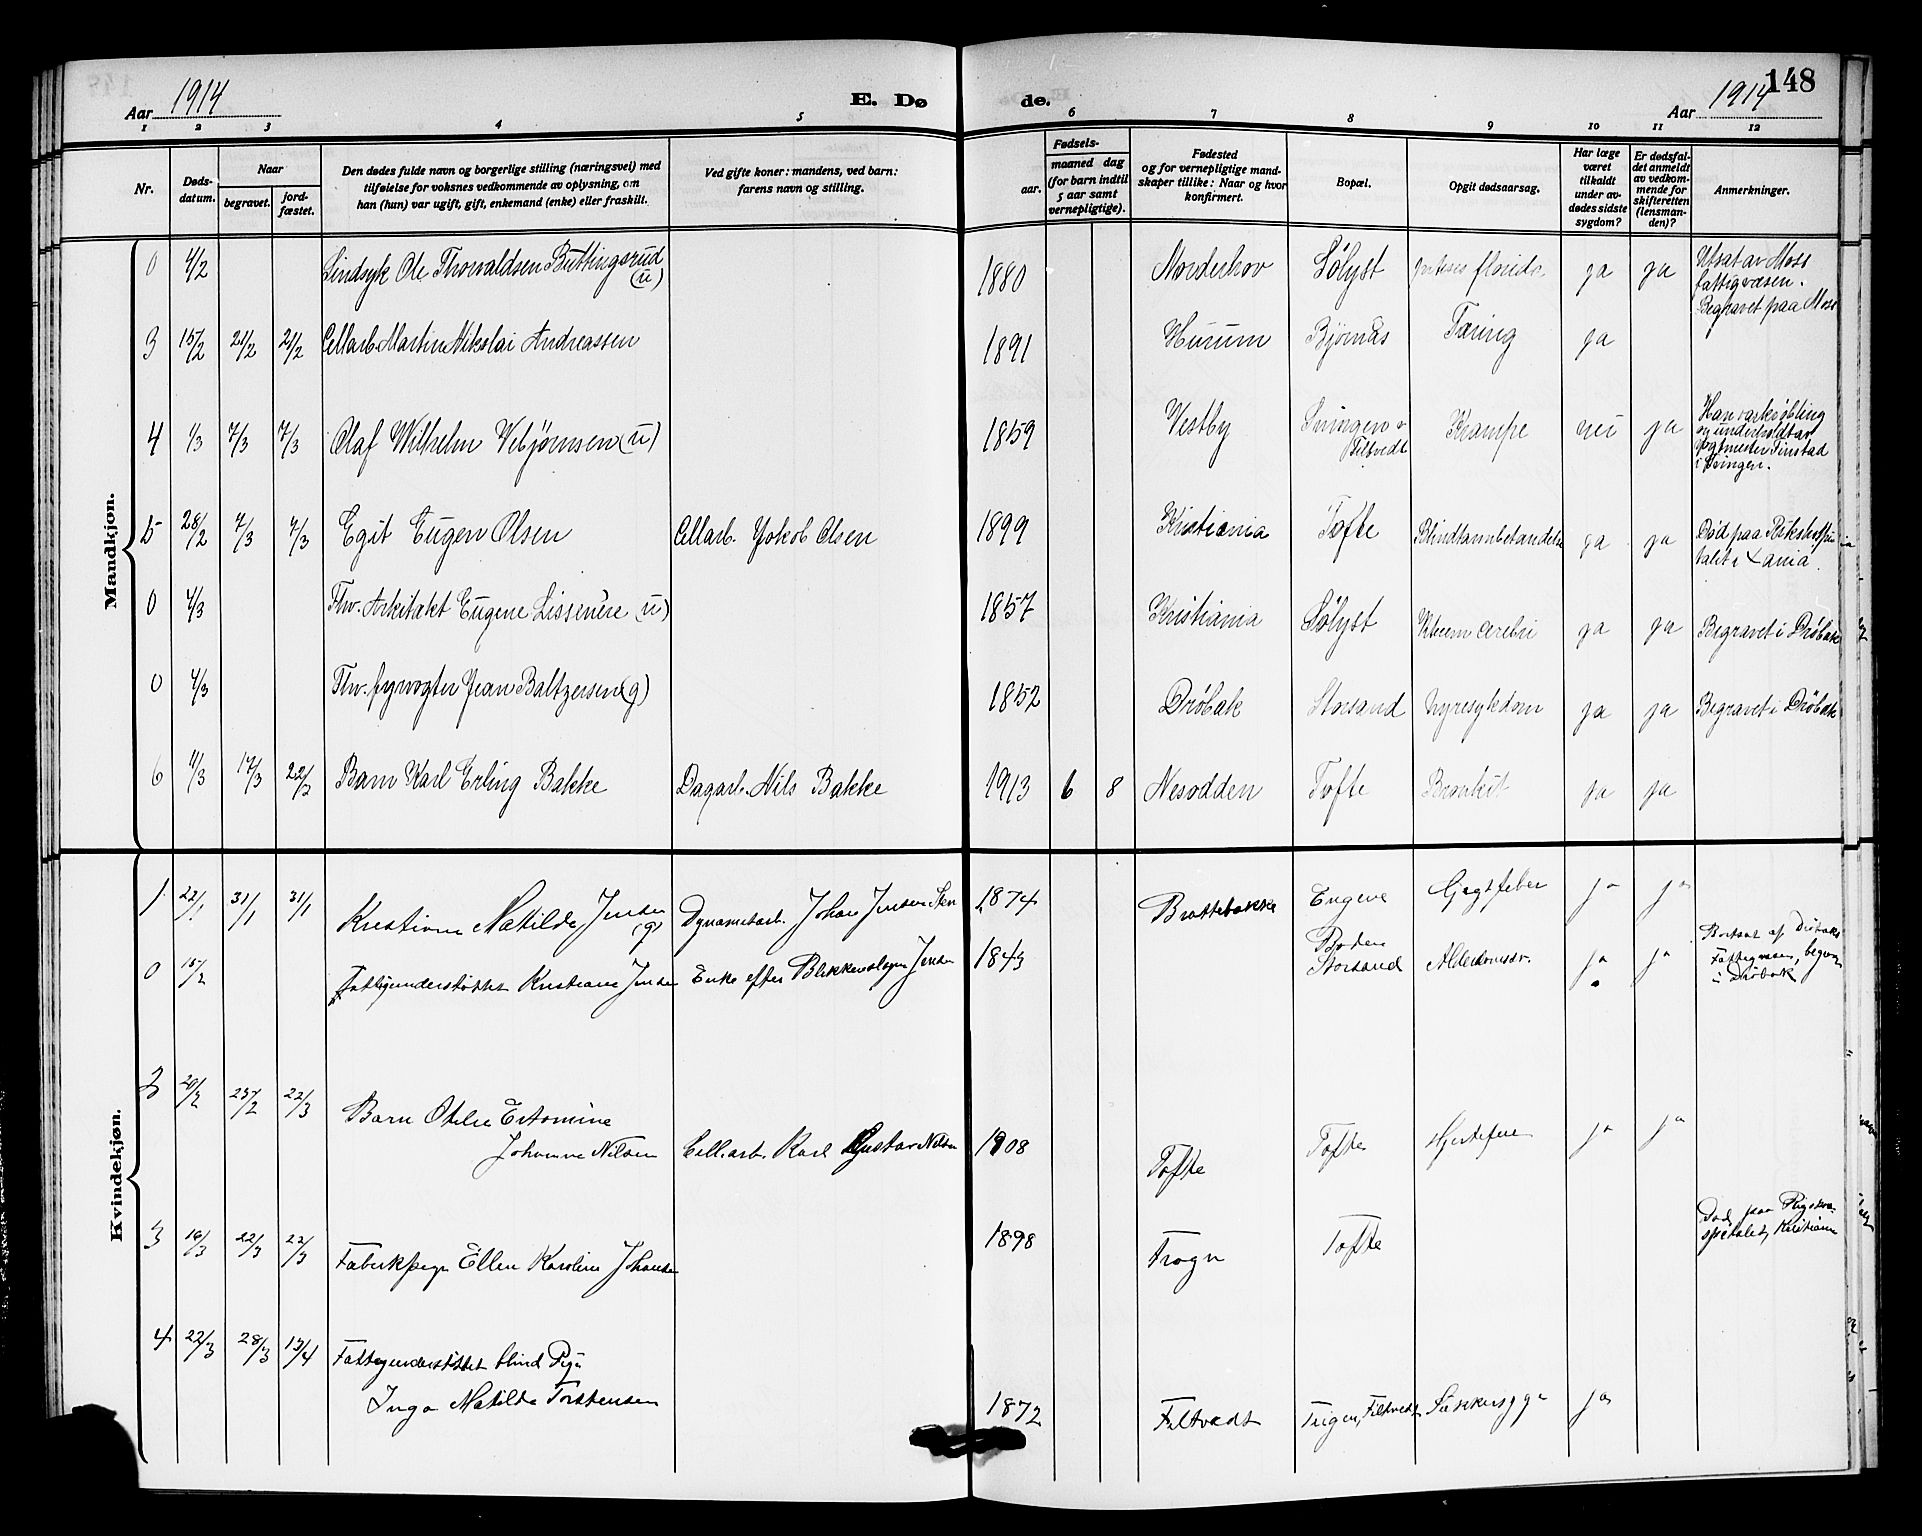 148
Aar 1914
E. Dø
de.
Aar 1914
1 2 3 4 5 6 7 8 9 10 11 12
Nr.
Døds-
datum.
Naar
begravet.
jord-
fæstet.
Den dødes fulde navn og borgerlige stilling (næringsvei) med
tilføielse for voksnes vedkommende av oplysning, om
han (hun) var ugift, gift, enkemand (enke) eller fraskilt.
Ved gifte koner: mandens, ved barn:
farens navn og stilling.
Fødsels-
aar.
maaned dag
(for barn indtil
5 aar samt
vernepligtige).
Fødested
og for vernepligtige mand-
skaper tillike: Naar og hvor
konfirmert.
Bopæl.
Opgit dødsaarsag.
Har læge
været
tilkaldt
under av-
dødes sidste
sygdom?
Er dødsfal-
det anmeldt
av vedkom-
mende for
skifteretten
(lensman-
den)?
Anmerkninger.
Mandkjøn.
0 4/2 Sindsyk Ole Thorvaldsen Buttingsrud (u) 1880 Norderhov Sölyst florida ja ja Utsat av Moss
fattigvæsen.
Begravet paa Moss
3 15/2 21/2 21/2 Cellarb. Martin Nikolai Andreassen 1891 Hurum Bjørnås Tæring ja
4 1/3 7/3 7/3 Olaf Wilhelm Vebjørnsen (u) 1859 Vestby Filtvedt Krampe nei ja Han var
og underholdt av
i Svingen.
5 28/2 7/3 7/3 Egil Eugen Olsen Cellarb. Jakob Olsen 1899 Kristiania Tofte Blindtarmbetændelse ja ja Död paa Rikshospi
talet i Xania.
0 4/3 Fhv. Arkitekt Eugene (u) 1857 Kristiania Sölyst cerebri ja ja Begravet i Dröbak
0 4/3 Fhv. fyrvogter Jean Baltzersen (g) 1852 Dröbak Storsand Nyresykdom ja ja Begravet i Dröbak
6 11/3 17/3 22/3 Barn Karl Erling Bakke Dagarb. Nils Bakke 1913 6 8 Nesodden Tofte Bronkit ja ja
Kvindekjøn.
1 22/1 31/1 31/1 Kristiane Matilde Jensen (g) Dynamitarb. Johan Jensen 1874 Brattebakke Engene Gigtfeber ja ja
0 15/2 Fattigunderstöttet Kristiane Jensen Enke efter Blikkenslager Jensen 1843 Storsand Alderdomssv. ja ja Bortsat af Dröbaks
Fattigvæsen, begrav
i Dröbak
2 20/2 25/2 22/3 Barn Otelie Estomine
Johanne Nilsen Cell.arb. Karl Gustav Nilsen 1908 Tofte Tofte Hjertefeil ja ja
3 16/3 22/3 22/3 Fabrikpige Ellen Karoline Johansen 1898 Frogn Tofte Död paa Rigsho-
spitalet, Kristiania
4 22/3 28/3 13/4 Fattigunderstöttet blind Pige
Inga Matilde Torstensen 1872 Filtvedt Filtvedt Sukkersyge ja